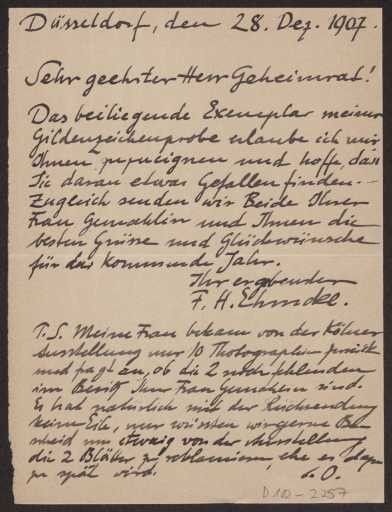 Düsseldorf, den 28. Dez. 1907.
Sehr geehrter Herr Geheimrat!
Das beiliegende Exemplar meiner
Gildenzeichenprobe erlaube ich mir
Ihnen zuzueignen und hoffe, dass
Sie daran etwas Gefallen finden. –
Zugleich senden wir Beide Ihrer
Frau Gemahlin und Ihnen die
besten Grüsse und Glückwünsche
für das kommende Jahr.
Ihr ergebenster
F. H. Ehmcke.
P.S. Meine Frau bekam von der Kölner
Ausstellung nur 10 Photographien zurück
und fragt an, ob die 2 noch fehlenden
im Besitz Ihrer Frau Gemahlin sind.
Es hat natürlich mit der Rücksendung
keine Eile, nur wüssten wir gerne Be-
scheid um etwaig von der Ausstellung
die 2 Blätter zu reklamieren, ehe es dazu
zu spät wird.
d. O.
D 100-2257